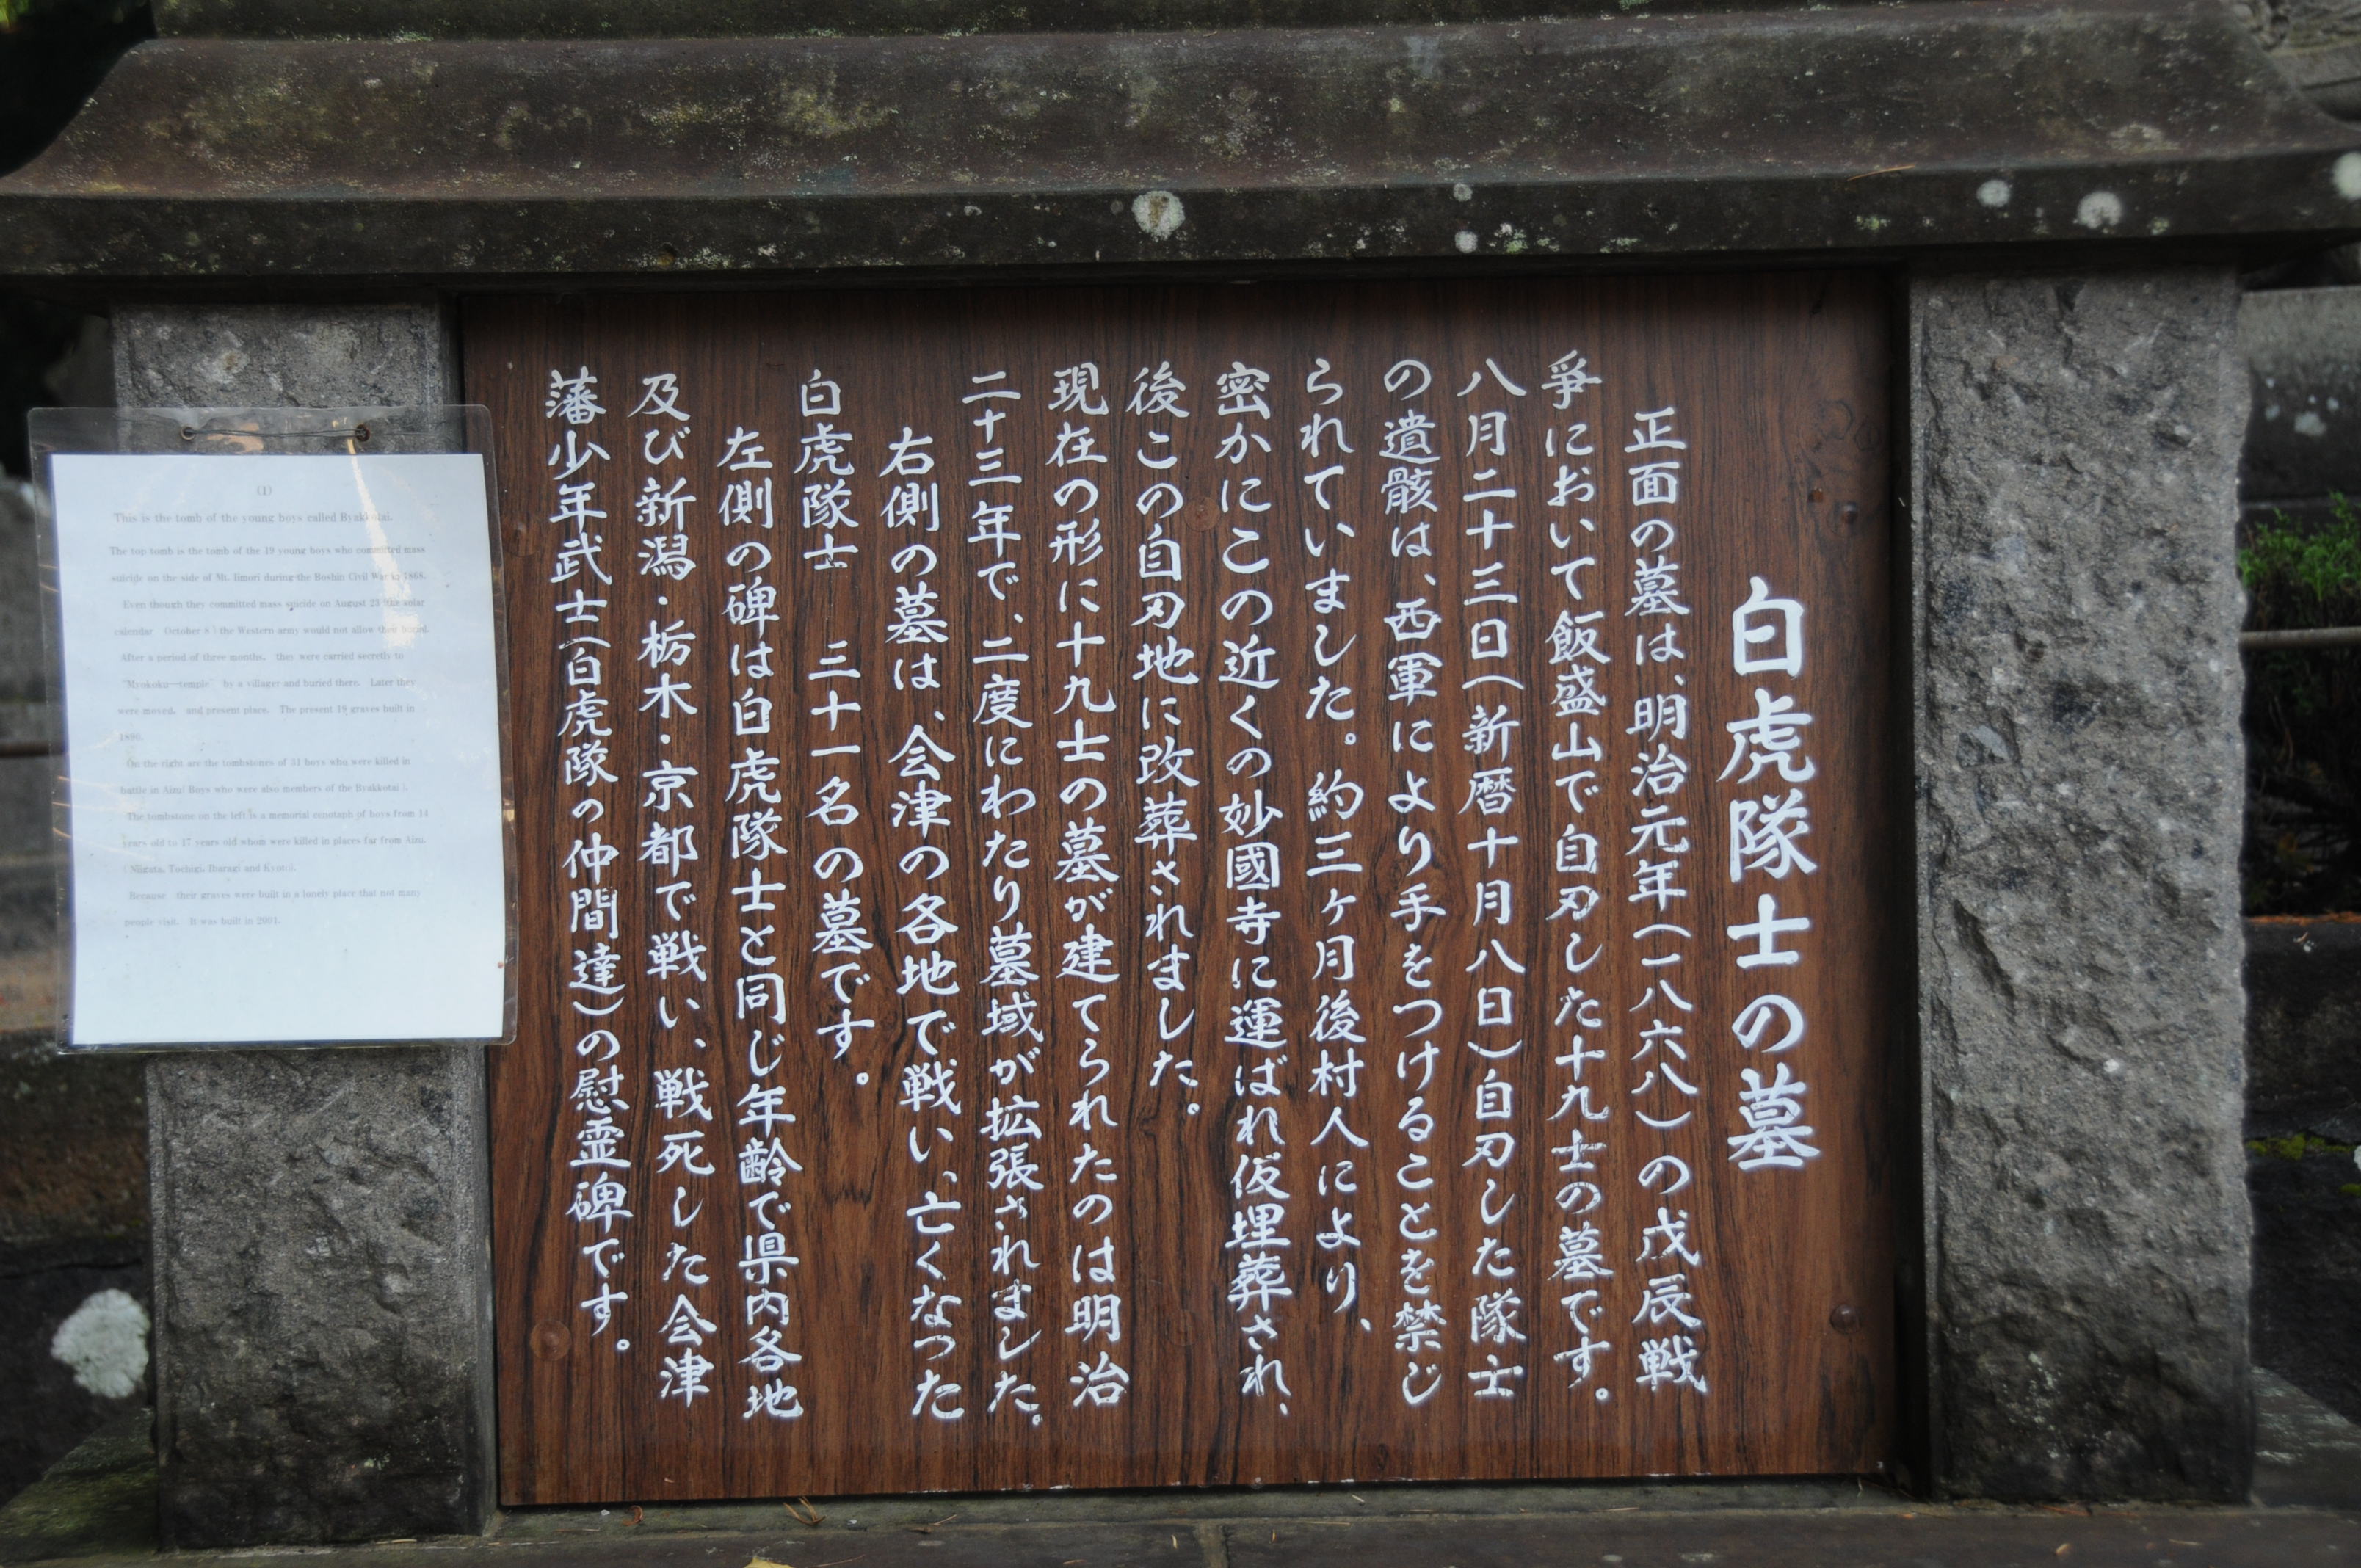 白虎隊士の墓
正面の墓は、明治元年(一八六八)の戊辰戦
爭において飯盛山で自刃した十九士の墓です。
八月二十三日(新暦十月八日)自刃した隊士
の遺骸は、西軍により手をつけることを禁じ
られていました。約三ヶ月後村人により、
密かにこの近くの妙國寺に運ばれ仮埋葬され、
後この自刃地に改葬されました。
現在の形に十九士の墓が建てられたのは明治
二十三年で、二度にわたり墓域が拡張されました。
右側の墓は、会津の各地で戦い、亡くなった
白虎隊士 三十一名の墓です。
左側の碑は白虎隊士と同じ年齢で県内各地
及び新潟・栃木・京都で戦い、戦死した会津
藩少年武士(白虎隊の仲間達)の慰霊碑です。
(1)
This is the tomb of the young boys called Byakkotai.
The top tomb is the tomb of the 19 young boys who committed mass
suicide on the side of Mt. Iimori during the Boshin Civil War in 1868.
Even though they committed mass suicide on August 23 solar
calendar October 8) the Western army would not allow their
After a period of three months, they were carried secretly to
"Myokoku-temple" by a villager and buried there. Later they
were moved, and present place. The present 19 graves built in
1890.
On the right are the tombstones of 31 boys who were killed in
battle in Aizu( Boys who were also members of the Byakkotai ).
The tombstone on the left is a memorial cenotaph of boys from 14
years old to 17 years old whom were killed in places far from Aizu.
( Niigata, Tochigi, Ibaragi and Kyoto).
Because their graves were built in a lonely place that not many
people visit. It was built in 2001.